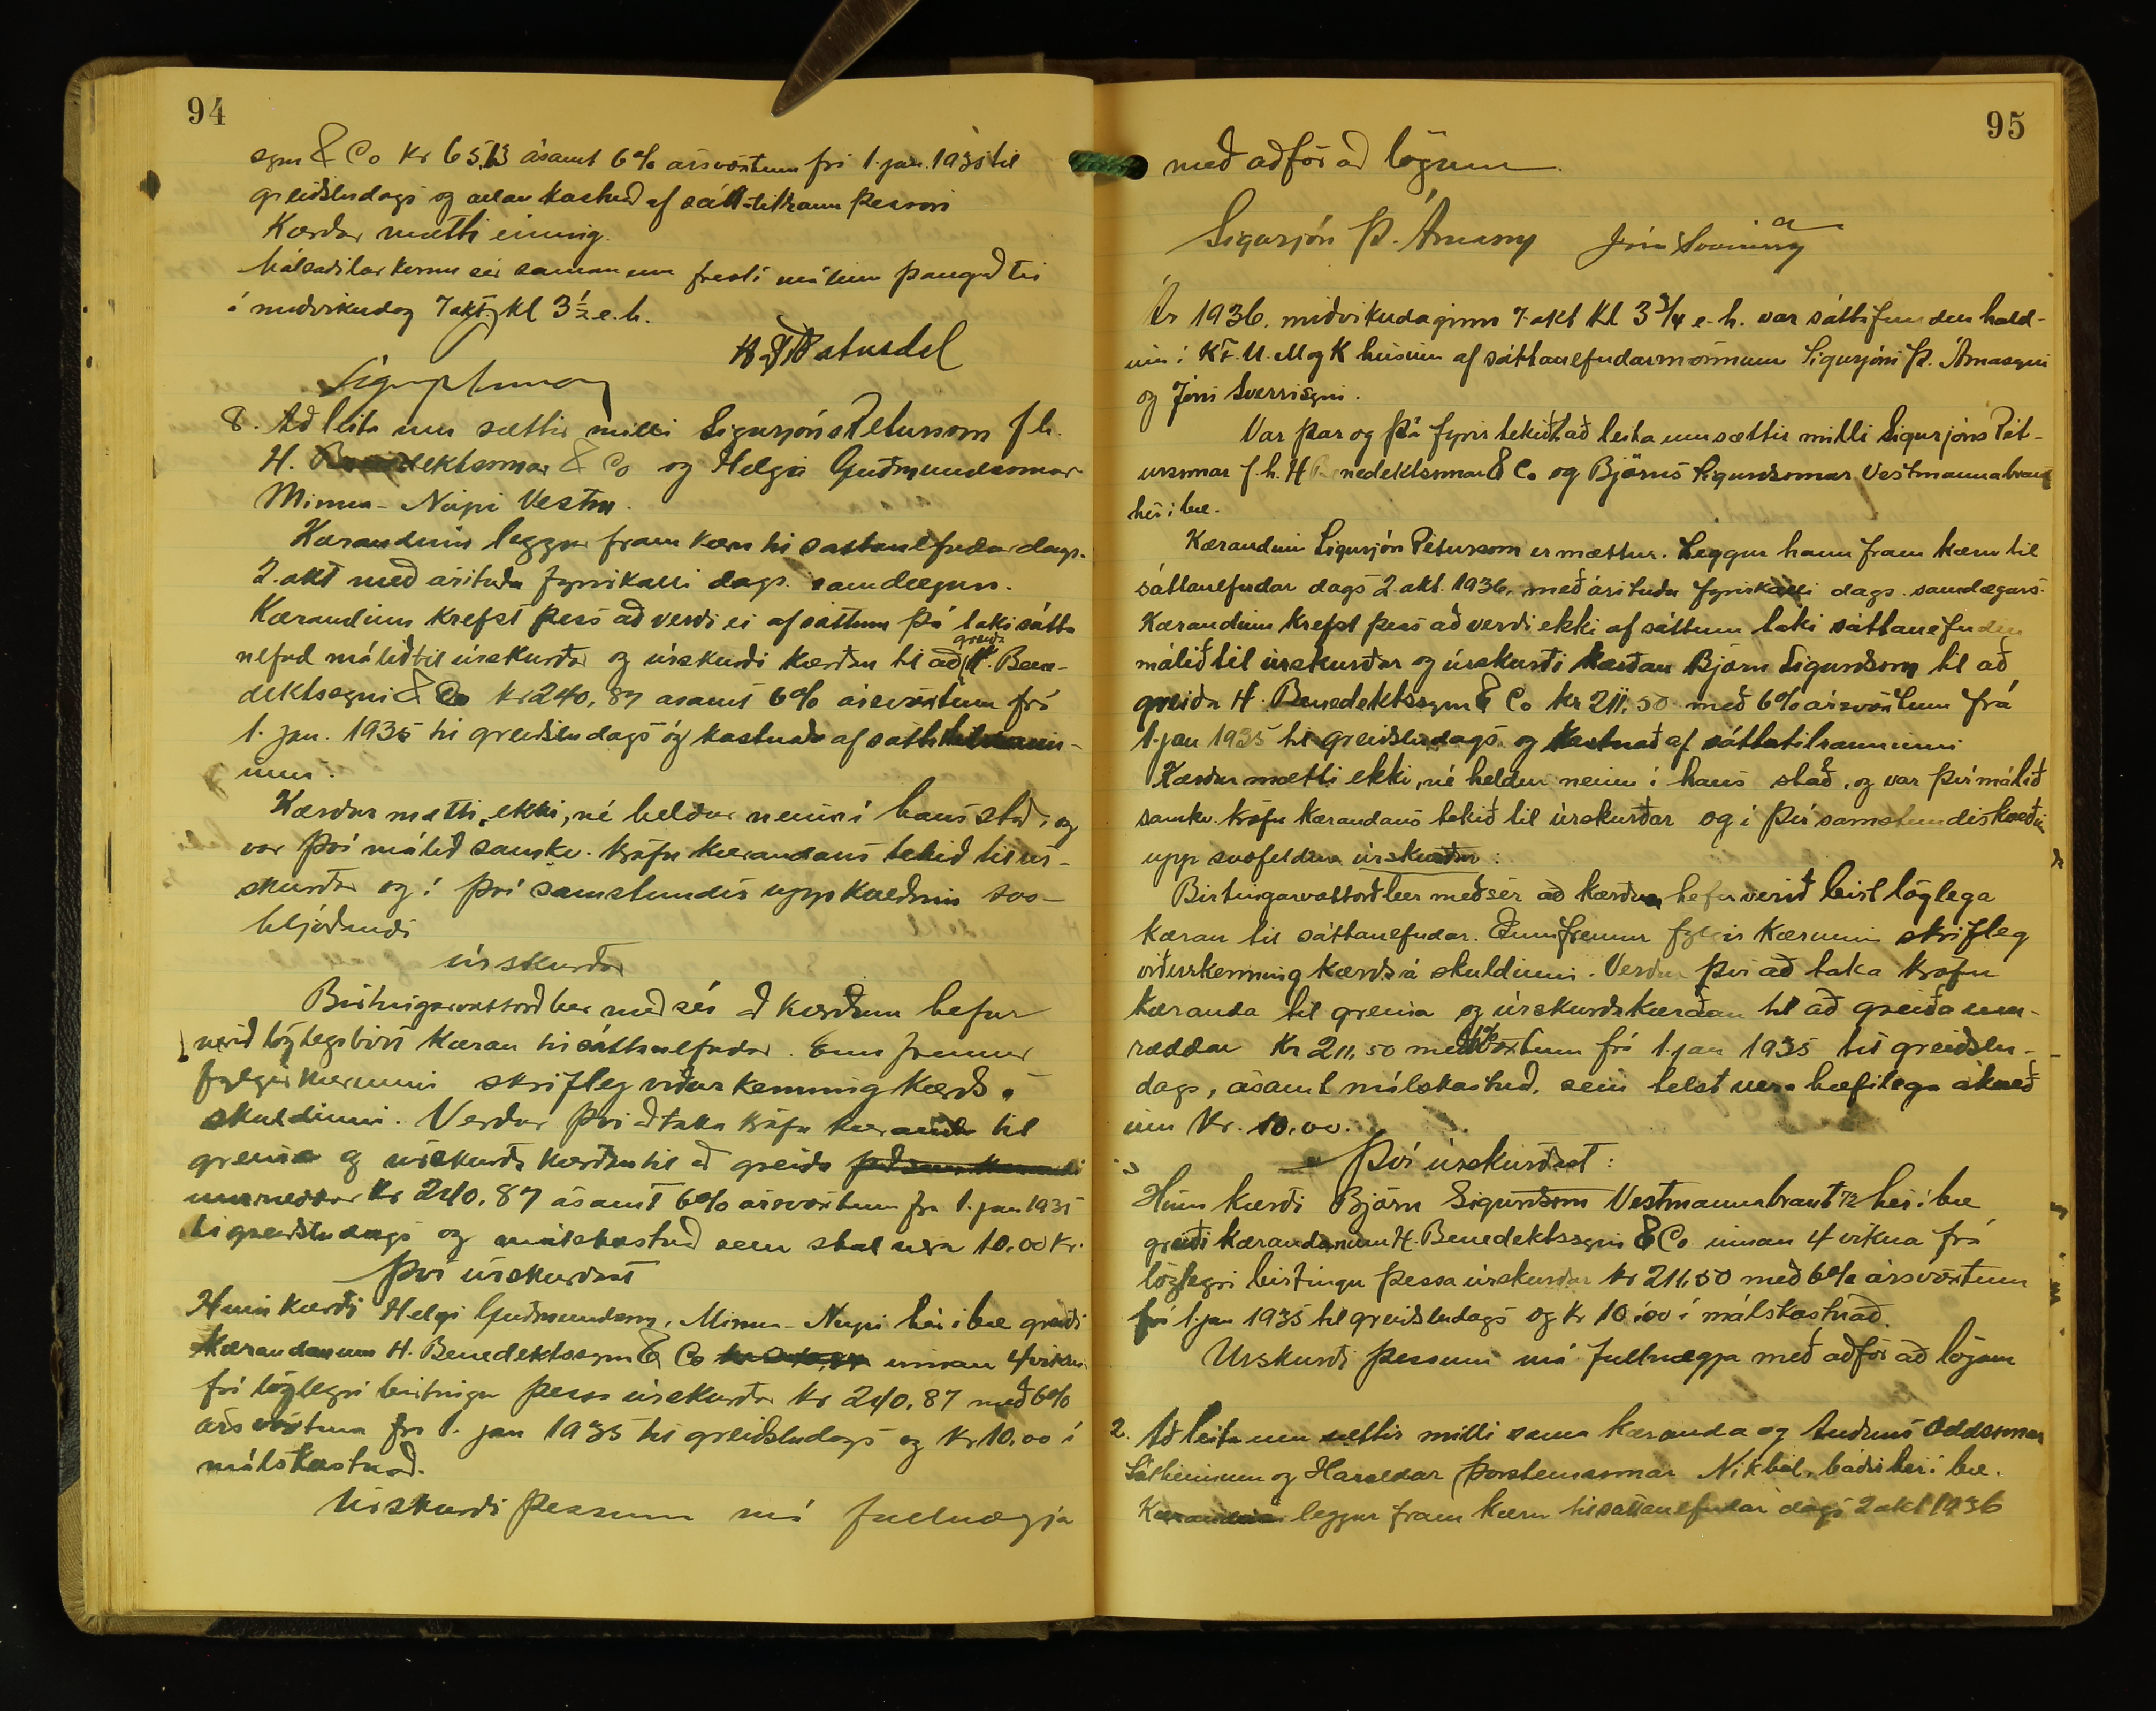 94
syni & Co Kr 65,13 ásamt 6% ársvöxtum frá 1. jan. 1935 til
greiðsludags og allan kostnað af sáttatilraun þessari
Kærður mætti einnig.
Málsaðilar komu sér saman um fresti málinu þangað til
á miðvikudag 7 okt. kl 3½ e.h.
8. Að leita um sættir milli Sigurjóns Péturssonar f.h.
H. Benediktssonar & Co og Helga Guðmundssonar
Minna-Núpi Vestm.
Kærandinn leggur fram kæru til sáttanefndar dags.
2. okt með árituðu fyrirkalli dags. samdægurs.
Kærandinn krefst þess að verði ei af sáttum þá taki sátta
nefnd málið til úrskurðar og úrskurði kærðan til að greiða H. Bene-
diktssyni & Co kr 240,87 ásamt 6% ársvöxtum frá
1. jan. 1935 til greiðsludags og kostnað af sáttatilraun-
inni.
Kærður mætti ekki, né heldur neinn í hans stað, og
var því málið samkv. kröfu kærandans tekið til úr-
skurðar og í því samstundis uppkveðinn svo-
hljóðandi
úrskurður
Birtingarvottorð ber með sér að kærðum hefur
verið löglega birt kæran til sáttanefndar. Enn fremur
fylgir kærunni skrifleg viðurkenning kærðs á
skuldinni. Verður því að taka kröfu kæranda til
greina og úrskurða kærðan til að greiða
umræddar kr 240,87 ásamt 6% ársvöxtum frá 1. jan 1935
til greiðsludags og málskostnað sem skal vera 10.00 kr.
Því úrskurðast
Hinn kærði Helgi Guðmundsson, Minna-Núpi hér í bæ greiði
Kærandanum H. Benediktssyni & Co innan 4 vikna
frá löglegri birtingu þessa úrskurðar kr 240,87 með 6%
ársvöxtum frá 1. jan 1935 til greiðsludags og kr. 10,00 í
málskostnað.
Úrskurði þessum má fullnægja
95
með aðför að lögum
Sigurjón Þ. Árnason Jón Sverrisson
Ár 1936. miðvikudaginn 7. okt kl 3¾ e.h. var sáttafundur hald-
inn í K.F.U.M og K húsinu af sáttanefndarmönnum Sigurjóni Þ. Árnasyni
og Jóni Sverrissyni.
Var þar og þá fyrirtekið að leita um sættir milli Sigurjóns Pét-
urssonar f.h. H Benediktssonar & Co og Björns Sigurðssonar Vestmannabraut
hér í bæ.
Kærandinn Sigurjón Pétursson er mættur. Leggur hann fram kæru til
sáttanefndar dags 2. okt. 1936, með árituðu fyrirkalli dags. samdægurs.
Kærandinn krefst þess að verði ekki af sáttum taki sáttanefndin
málið til úrskurðar og úrskurði kærðan Björn Sigurðsson til að
greiða H. Benediktssyni & Co kr 211,50 með 6% ársvöxtum frá
1. jan 1935 til greiðsludags og kostnað af sáttatilrauninni
Kærður mætti ekki, né heldur neinn í hans stað, og var því málið
samkv. kröfu kærandans tekið til úrskurðar og í því samstundis kveðinn
upp svofelldur úrskurður:
Birtingarvottorð ber með sér að kærðum hefur verið birt löglega
kæran til sáttanefndar. Ennfremur fylgir kærunni skrifleg
viðurkenning kærðs á skuldinni. Verður því að taka kröfu
kæranda til greina og úrskurða kærðan til að greiða um-
ræddar kr 211,50 með 6% vöxtum frá 1. jan 1935 til greiðslu-
dags, ásamt málskostnað, sem telst vera hæfilega ákveð
inn kr. 10.00.
Því úrskurðast:
Hinn kærði Björn Sigurðsson Vestmannabraut 72 hér í bæ
greiði kærandanum H. Benediktssyni & Co innan 4 vikna frá
löglegri birtingu þessa úrskurðar kr 211,50 með 6% ársvöxtum
frá 1. jan 1935 til greiðsludags og kr 10,00 í málskostnað.
Úrskurði þessum má fullnægja með aðför að lögum
2. Að leita um sættir milli sama kæranda og Auðuns Oddssonar
og Haraldar Þorsteinssonar Nikhól, báðir hér í bæ.
Kærandinn leggur fram kæru til sáttanefndar dags 2 okt 1936